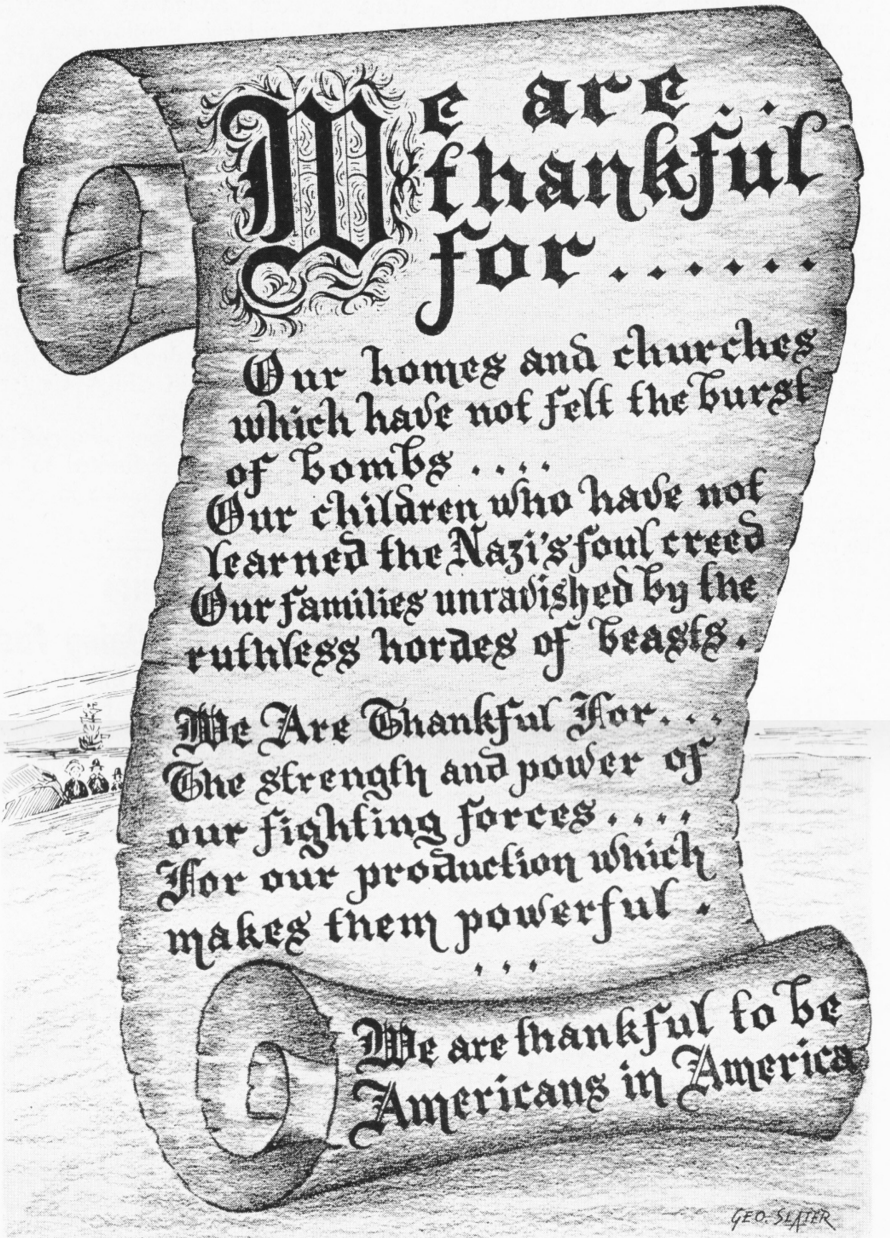 We are..
thankful
for.......
Our homes and churches
which have not felt the burst
of bombs ....
Our children who have not
learned the Nazi's foul creed
Our families unravished by the
ruthless hordes of beasts.
We Are Thankful For...
The strength and power of
our fighting forces....
For our production which
makes them powerful .
...
We are thankful to be
Americans in America
GEO. SLATER